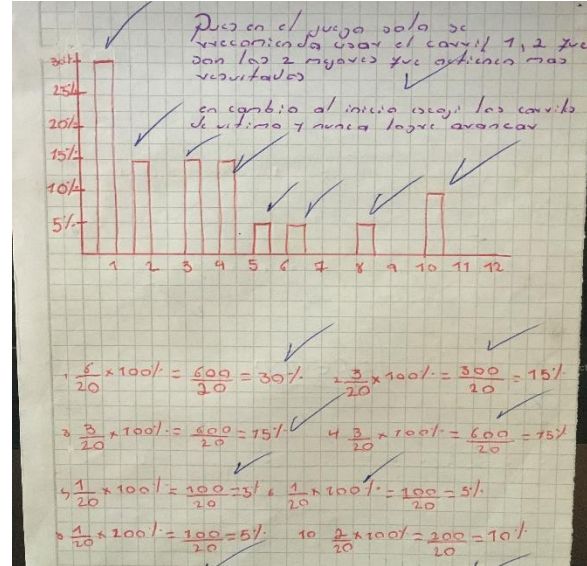 Pues en el juego solo se
recomienda usar el carril 1, 2 que
son los 2 mayores que obtienen mas
resultados
en cambio al inicio escoji los carriles
de ultimo y nunca logre avanzar
30%
25%
20%
15%
10%
5%
1 2 3 4 5 6 7 8 9 10 11 12
1 6/20 × 100% = 600/20 = 30% 2 3/20 × 100% = 300/20 = 15%
3 3/20 × 100% = 600/20 = 15% 4 3/20 × 100% = 600/20 = 15%
5 1/20 × 100% = 100/20 = 5% 6 1/20 × 100% = 100/20 = 5%
8 1/20 × 200% = 100/20 = 5% 10 2/20 × 100% = 200/20 = 10%